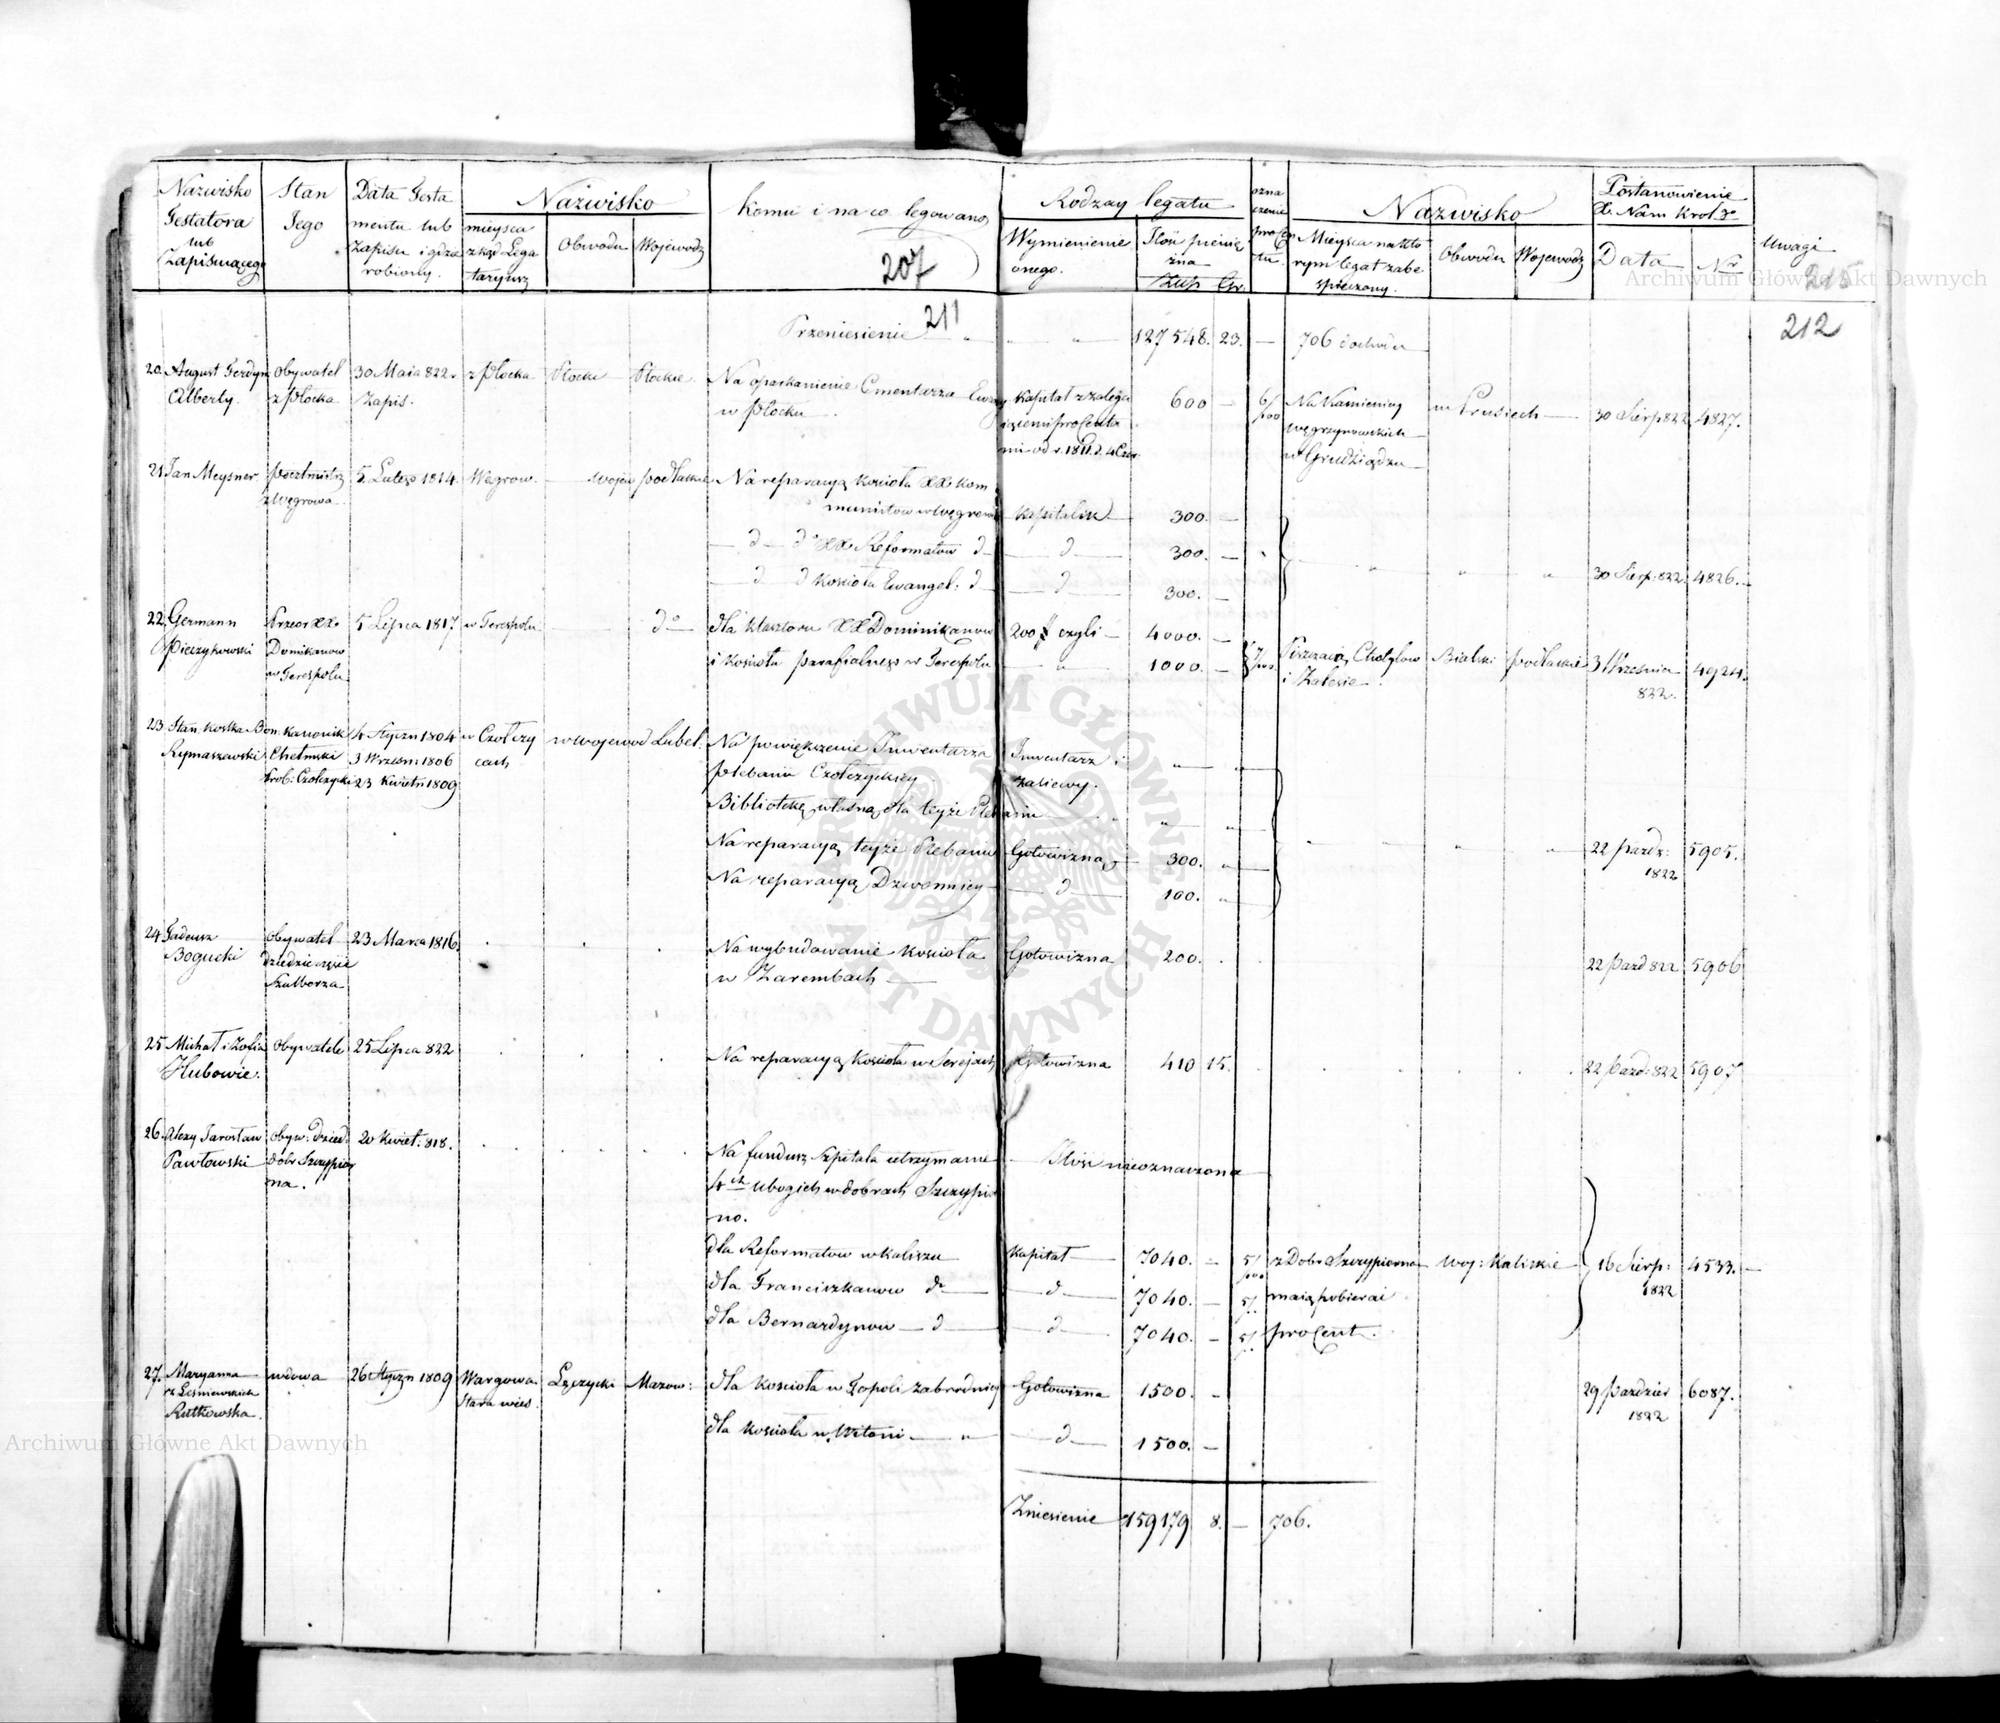 Nazwisko Testatora lub Zapisującego
Stan Jego
Data Testamentu lub Zapisu i gdzie robiony.
Nazwisko
mieysca zkąd Legataryusz
Obwodu
Wojewodz
Komu i na co legowano,
207
Rodzay legatu
Wymienienie onego.
Ilość pienię żna
Złup Gr.
ozna czenie proCen tu.
Nazwisko
Mieysca na któ rym legat zabe spieczony.
Obwodu
Wojewodz
Postanowienie X. Nam Krol.
Data
Nr
Uwagi
215
Przeniesienie 211 " " " 127548. 23. — 706 dochodu
212
20. August Ferdyn Alberty. Obywatel z Płocka 30 Maia 822. Zapis. z Płocka Płocki Płockie. Na oparkanienie Cmentarza Ewang w Płocku. Kapitał z zaległa iącemi proCenta mi od r. 1811. 600 — 6/100 Na Kamienicy Węgrzynowskich w Grudziądzu w Prusiech 30 Sierp 822 4827.
21. Jan Meysner Pocztmistrz z Węgrowa 5 Lutego 1814. Węgrow. — Wojew Podlaskie Na reparacyą Kościoła XX Kom
munistow w Węgrowie Kapitalik 300. —
— d — do XX Reformatow d — d — 300. —
— d — d Kościoła Ewangel: d — d — 300. — " " " 30 Sierp: 822. 4826. —
22. Germann Pieczykowski Przeor XX. Domikanow w Terespolu 5 Lipca 1817 w Terespolu — do — dla Klasztoru XX Dominikanow 200 # czyli — 4000. —
i Kościoła parafialnego w Terespolu — " — 1000. — Piszczaią Chotyłow i Zalesie. Bialski Podlaskie 3 Września 822. 4924.
23. Stan. Kostka Bon. Rymaszewski Kanonik Chełmski Prob: Czołczycki 4 Styczn 1804 3 Wrzesn 1806 23 Kwietn 1809 w Czołczy cach w Wojewod Lubel. Na powiększenie Inwentarza Plebanii Czołczyckiey Inwentarz i zasiewy. " "
Bibliotekę własną dla teyże Plebanii — " "
Na reparacyą teyże Plebanii Gotowizna 300. " " " " 22 Pazdz: 1822 5905.
Na reparacyą Dzwonnicy — d — 100. "
24. Tadeusz Bogucki Obywatel dziedzic części Szulborza 23 Marca 1816. . . . Na wybudowanie Kościoła w Zarembach — Gotowizna 200. . . 22 Pazd 822 5906
25. Michał i Zofia Hubowie. Obywatele 25 Lipca 822 . . . Na reparacyą Kościoła w Serejach Gotowizna 410 15. . . . . 22 Pazd: 822 5907
26. Alexy Jarosław Pawłowski Obyw: Dzied: dobr Szczypior na. 20 Kwiet: 818. . . . Na fundusz Szpitala utrzymanie — Ilość nieoznaczona
4ch ubogich w dobrach Szczypior
no.
dla Reformatow w Kaliszu Kapitał — 7040. — 5/100 z Dobr Szczypiorna Woj: Kaliskie 16 Sierp: 1822 4533. —
dla Franciszkanow do — d — 7040. — 5/. maią pobierać
dla Bernardynow — d — d — 7040. — 5/. proCent.
27. Maryanna z Leśniewskich Rutkowska. wdowa 26 Styczn 1809 Wargowa. Stara wieś. Łęczycki Mazow: dla Kościoła w Topoli Gotowizna 1500. — 29 Pazdzier 1822 6087.
dla Kościoła w Witoni — " — d — 1500. —
Zniesienie 159179 8. — 706.
Archiwum Główne Akt Dawnych
Archiwum Główne Akt Dawnych
ARCHIWUM GŁÓWNE AKT DAWNYCH